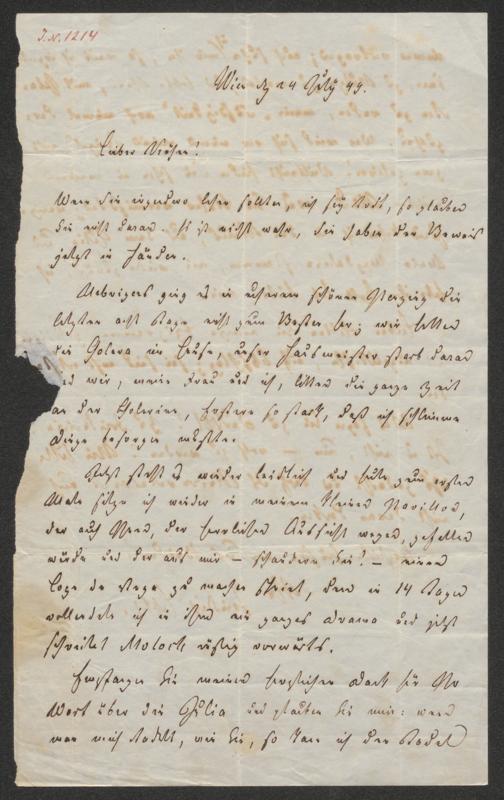 I.N. 1214
Wien d 24 July 49.
Lieber Kühne!
Wenn Sie irgendwo lesen sollten, ich sey todt, so glauben
Sie nicht daran. Es ist nicht wahr, Sie haben den Beweis
jetzt in Händen.
Uebrigens ging es in unserem schönen Penzing die
letzten acht Tage nicht zum Besten her; wir hatten
die Cholera im Hause, unser Hausmeister starb daran
und wir, meine Frau und ich, litten die ganze Zeit
an der Cholerine, Erstere so stark, daß ich schlimme
Dinge besorgen mußte.
Jetzt steht es wieder leidlich und heute zum ersten
Male sitze ich wieder in meinem kleinen Pavillon,
der auch Ihnen, der herrlichen Aussicht wegen, gefallen
würde und der auf mir – schaudern Sie! – einen
Loge de Neige zu machen scheint, denn in 14 Tagen
vollendete ich in ihm ein ganzes Drama und jetzt
schreitet Moloch rüstig vorwärts.
Empfangen Sie meinen herzlichen Dank für Ihr
Wort über die Julia und glauben Sie mir: wenn
man mich tadelt, wie Sie, so kann ich den Tadel